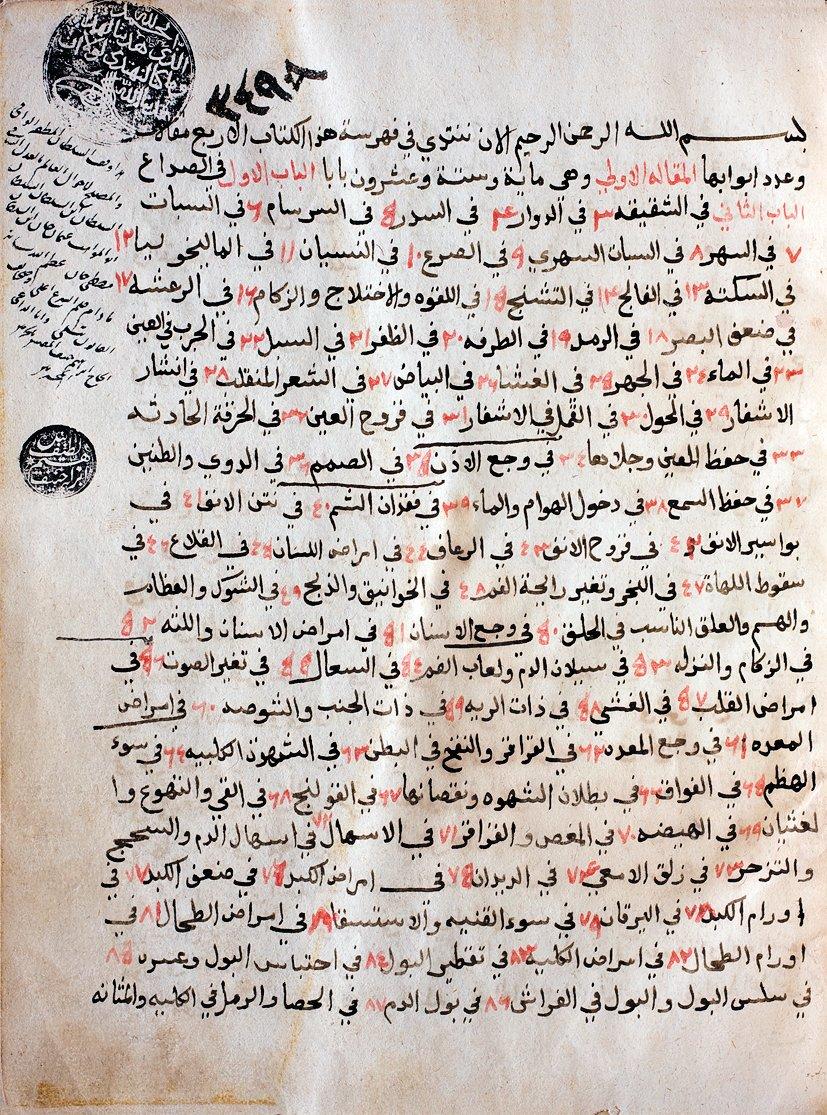 ٣٤٩٠٨
بسم الله الرحمن الرحيم الان نبتدي في فهرسة هذا الكتاب الاربع مقالات
وعدد ابوابها المقاله الاولي وهي ماية وستة وعشرون بابا الباب الاول في الصداع
الباب الثاني في الشقيقه ٣ في الدوار ٤ في السدر ٥ في السرسام ٦ في السبات
٧ في السهر ٨ في السبات السهري ٩ في الصرع ١٠ في النسيان ١١ في الماليخوليا ١٢
في السكتة ١٣ في الفالج ١٤ في التشنج ١٥ في اللقوه والاختلاج والزكام ١٦ في الرعشه ١٧
في ضعف البصر ١٨ في الرمد ١٩ في الطرفه ٢٠ في الظفر ٢١ في السبل ٢٢ في الجرب في العين
٢٣ في الماء ٢٤ في الجهر ٢٥ في الغشا ٢٦ في البياض ٢٧ في الشعر المنقلب ٢٨ في انتشار
الاشفار ٢٩ في الحول ٣٠ في القمل في الاشفار ٣١ في قروح العين ٣٢ في الحرقة الحادثه
٣٣ في حفظ العين وجلاها ٣٤ في وجع الاذن ٣٥ في الصمم ٣٦ في الدوي والطنين
٣٧ في حفظ السمع ٣٨ في دخول الهوام والماء ٣٩ في فقدان الشم ٤٠ في نتن الانف ٤١ في
بواسير الانف ٤٢ في قروح الانف ٤٣ في الرعاف ٤٤ في امراض اللسان ٤٥ في القلاع ٤٦ في
سقوط اللهاة ٤٧ في البخر وتغير رايحة الفم ٤٨ في الخوانيق والذبح ٤٩ في الشوك والعظام
والهسم والعلق الناسب في الحلق ٥٠ في وجع الاسنان ٥١ في امراض الاسنان واللثه ٥٢
في الزكام والنزله ٥٣ في سيلان الدم ولعاب الفم ٥٤ في السعال ٥٥ في تغير الصوت ٥٦ في
امراض القلب ٥٧ في الغشي ٥٨ في ذات الريه ٥٩ في ذات الجنب والشوصه ٦٠ في امراض
المعده ٦١ في وجع المعده ٦٢ في القراقر والنفخ في البطن ٦٣ في الشهوة الكلبيه ٦٤ في سوء
الهظم ٦٥ في الفواق ٦٦ في بطلان الشهوه ونقصانها ٦٧ في القولنج ٦٨ في القي والتهوع وا
لغثيان ٦٩ في الهيضه ٧٠ في المغص والقراقر ٧١ في الاسهال ٧٢ في اسهال الدم والسحج
والتزحر ٧٣ في زلق الامعي ٧٤ في الديدان ٧٥ في امراض الكبد ٧٦ في ضعف الكبد ٧٧ في
اورام الكبد ٧٨ في اليرقان ٧٩ في سوء القنيه والاستسقا ٨٠ في امراض الطحال ٨١ في
اورام الطحال ٨٢ في امراض الكليه ٨٣ في تقطير البول ٨٤ في احتباس البول وعسره ٨٥
في سلس البول والبول في الفراش ٨٦ في بول الدم ٨٧ في الحصا والرمل في الكليه والمثانه